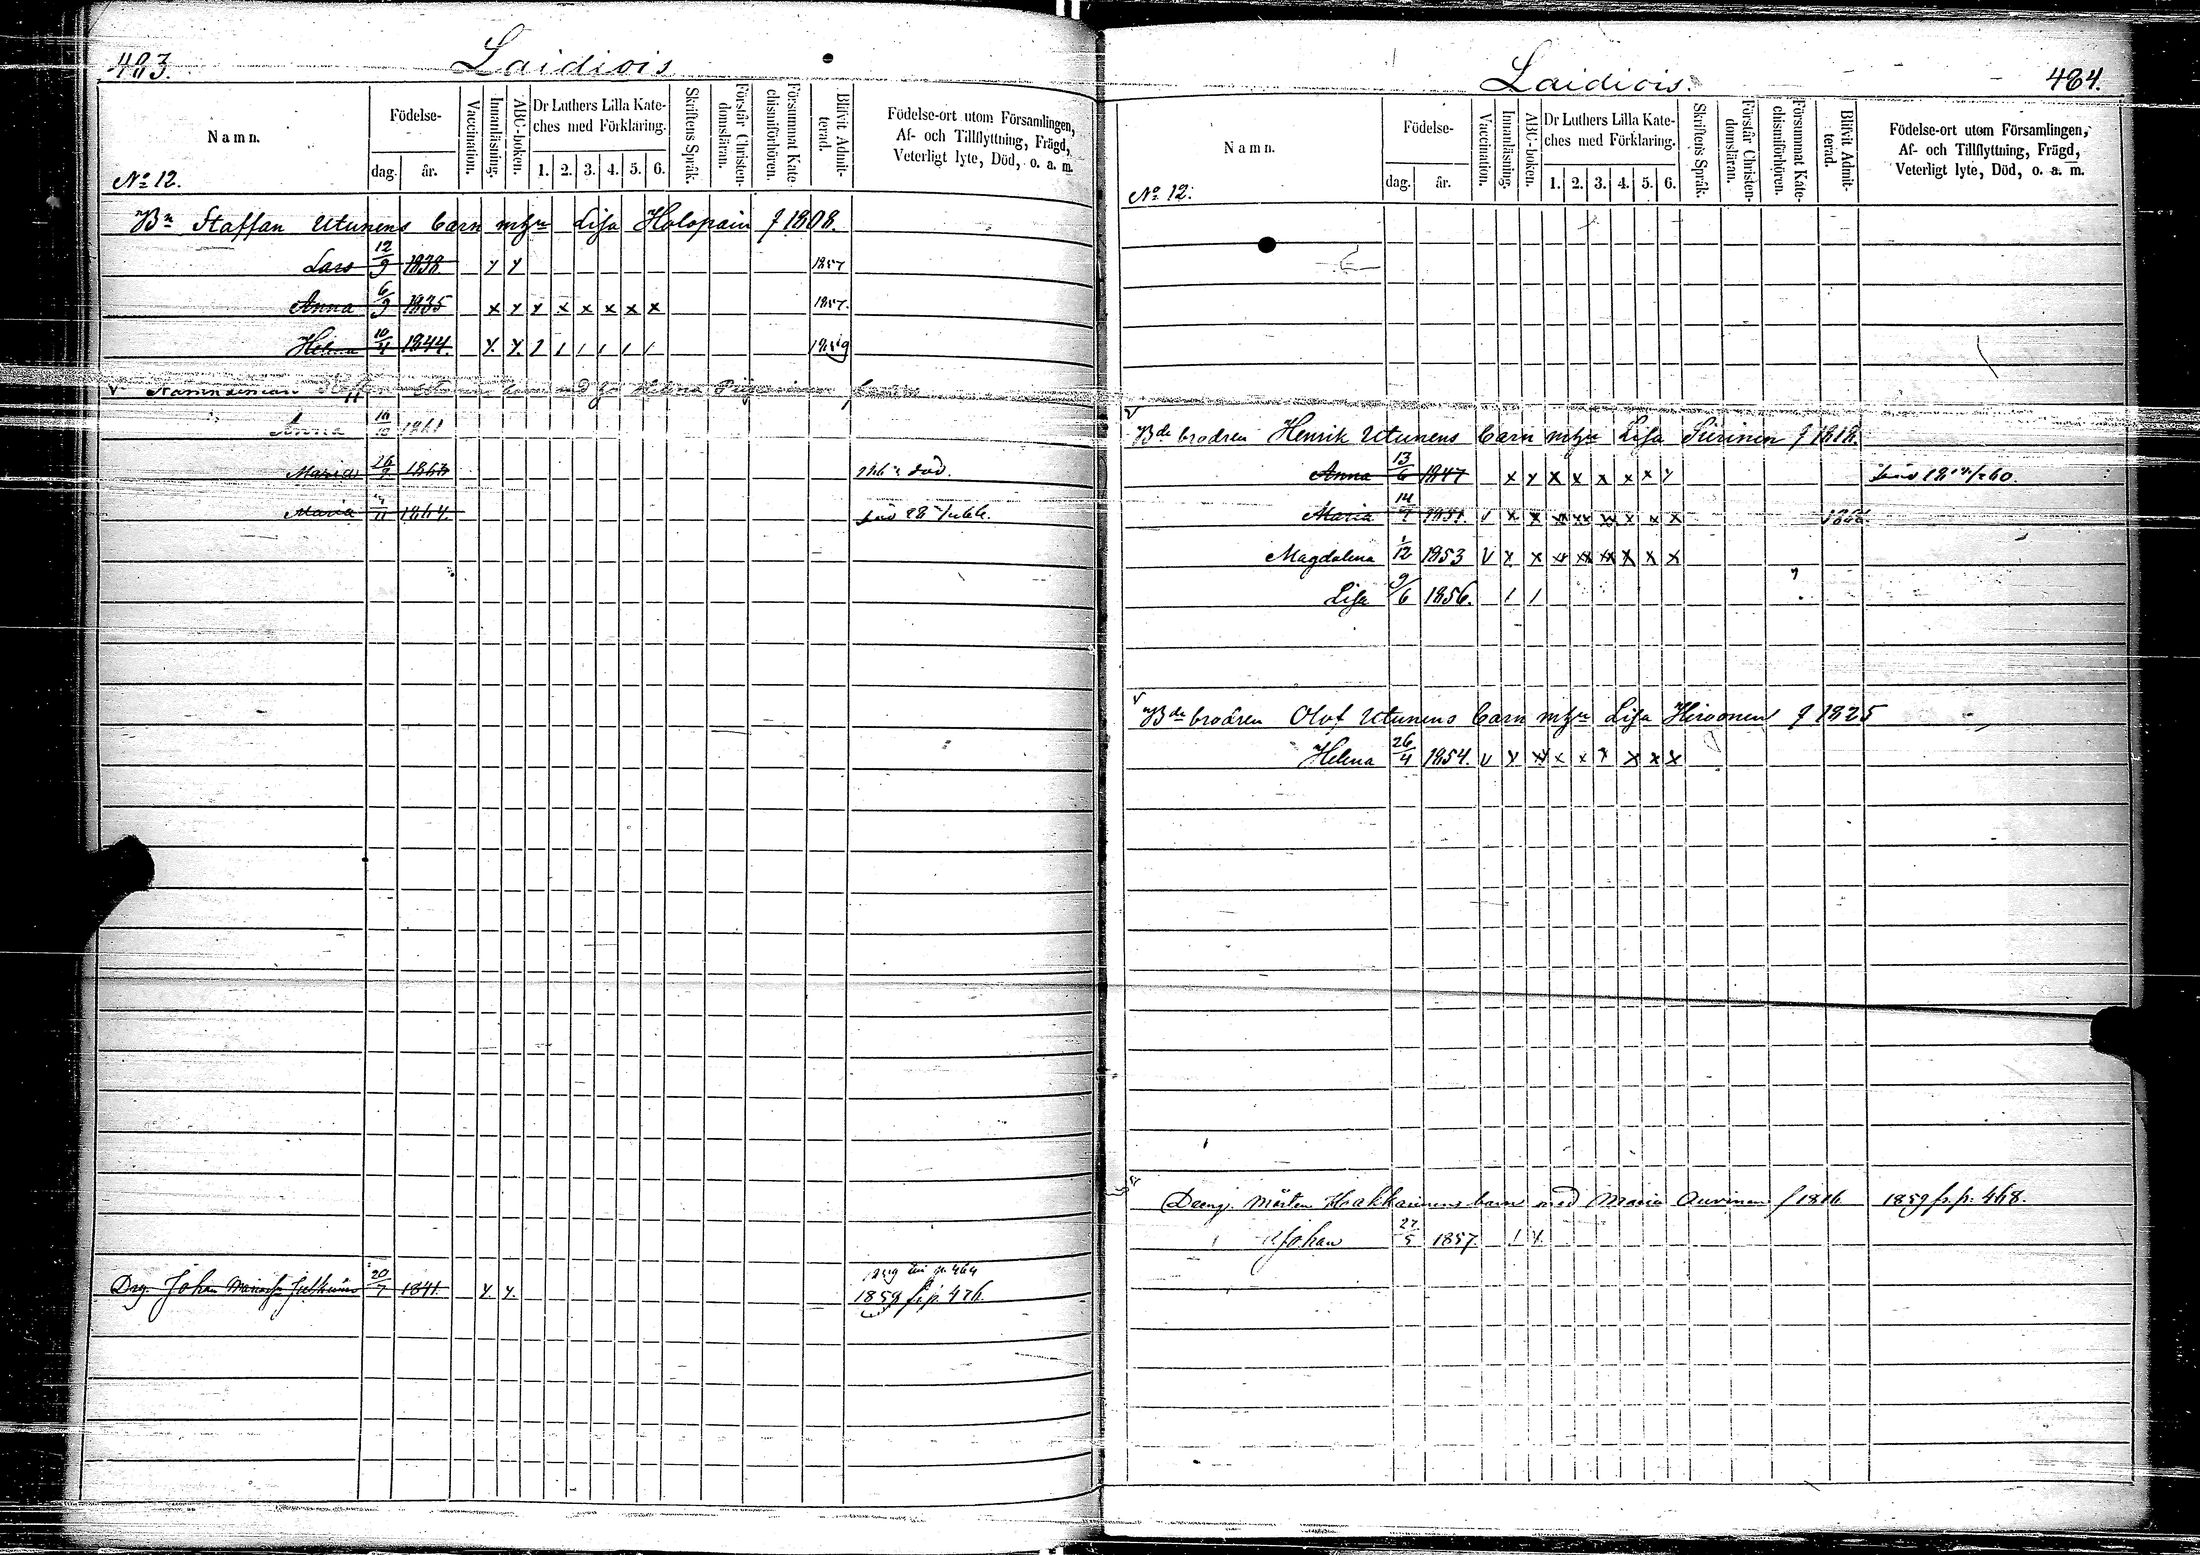 483.
Laidiois
Namn.
Födelse-
dag.
år.
Vaccination.
Innanläsning.
ABC-boken.
Dr Luthers Lilla Kate-
ches med Förklaring.
1. 2. 3. 4. 5. 6.
Skriftens Språk.
Förstår Christen-
domsläran.
Försummat Kate-
chismiförhören.
Blifvit Admit-
terad.
Födelse-ort utom Församlingen,
Af- och Tillflyttning, Frägd,
Veterligt lyte, Död, o. a. m.
No 12.
Bn Staffan Utunens barn mhu Lisa Holopain f 1808.
Lars 12/9 1838 x x 1857
Anna 6/9 1835 x x x x x x x x 1857.
Helena 10/4 1844. x. x. 1 1 1 1 1 1 1859
Anna 1861
Maria 26/9 1863 död.
Maria 11 1864. död
1859 till p. 464
Drg. Johan 20/7 1841. x. x. 1859 fr p. 476.
Laidiois.
484.
Namn.
Födelse-
dag.
år.
Vaccination.
Innanläsning.
ABC-boken.
Dr Luthers Lilla Kate-
ches med Förklaring.
1. 2. 3. 4. 5. 6.
Skriftens Språk.
Förstår Christen-
domsläran.
Försummat Kate-
chismiförhören.
Blifvit Admit-
terad.
Födelse-ort utom Församlingen,
Af- och Tillflyttning, Frägd,
Veterligt lyte, Död, o. a. m.
No 12.
Bde brodren Henrik Utunens barn mhu Lisa f 1818.
Anna 13/6 1847 x x x x x x x x död
Maria 14/4 1851. v x x x xx xx x x x
Magdalena 1/12 1853 v x x xx xx xx x x x
Lisa 9/6 1856. 1 1
Bde brodren Olof Utunens barn mhu Lisa Hirvonen f 1825
Helena 26/4 1854. v x xx x x x x x x
Dreng. Mårten Haakkainens barn med Maria Auvinen f 1816 1859 fr. p. 468.
Johan 27/5 1857. 1 x